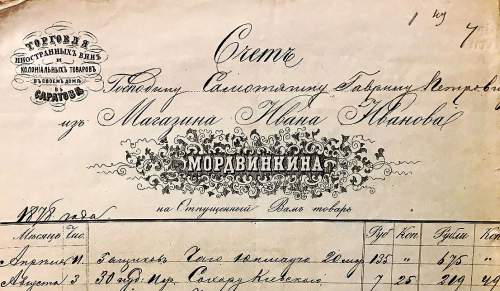 1 
7
ТОРГОВЛЯ
ИНОСТРАННЫХЪ ВИНЪ
И
КОЛОНІАЛЬНЫХЪ ТОВАРОВЪ
ВЪ СВОЕМЪ ДОМѢ
ВЪ
САРАТОВѢ
Счетъ
Господину Самоткину Гаврилу Петров
изъ Магазина Ивана Иванова
МОРДВИНКИНА
на Отпущенный Вамъ товаръ
1878 года
Мѣсяцъ Чис. Руб Коп Рубли Коп
11 20 135 " 675 "
Августа 3 30 7 25 219